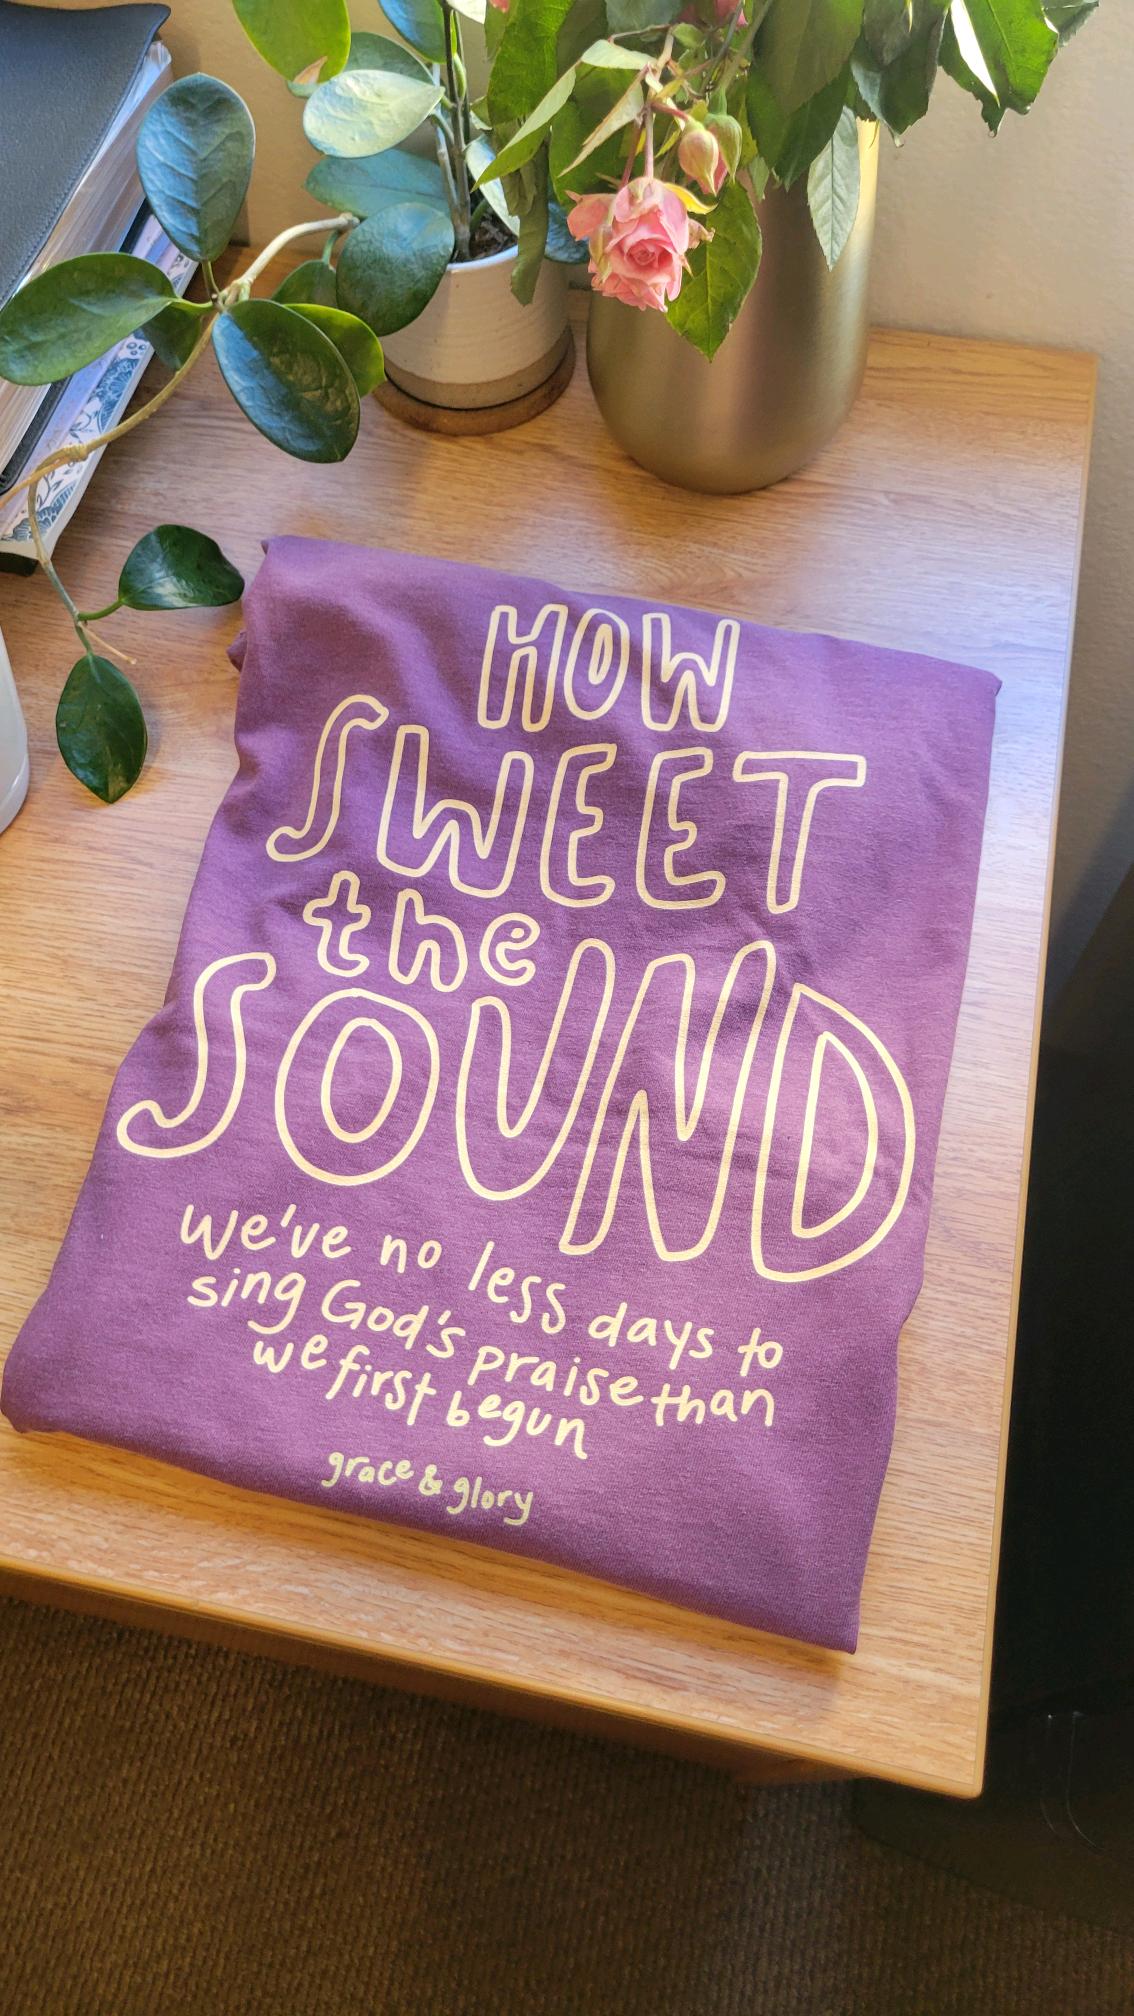 HOW
SWEET
the
SOUND
We've no less days to
sing God's praise than
we first begun
grace & glory